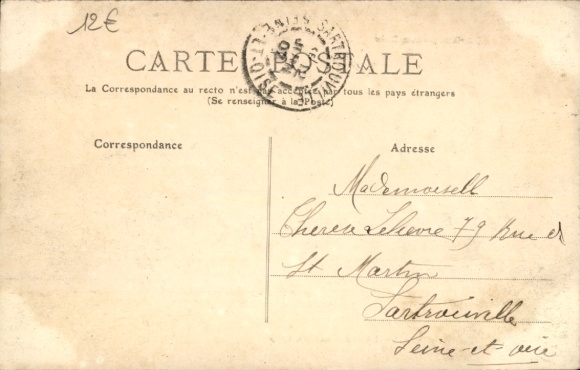 12€
CARTE POSTALE
La Correspondance au recto n'est pas acceptée par tous les pays étrangers
(Se renseigner à la Poste)
SARTROUVILLE
SEINE-ET-OISE
Correspondance
Adresse
Mademoisell
Therese Lelievre 79 Rue de
St Martin
Sartrouville
Seine-et-oise